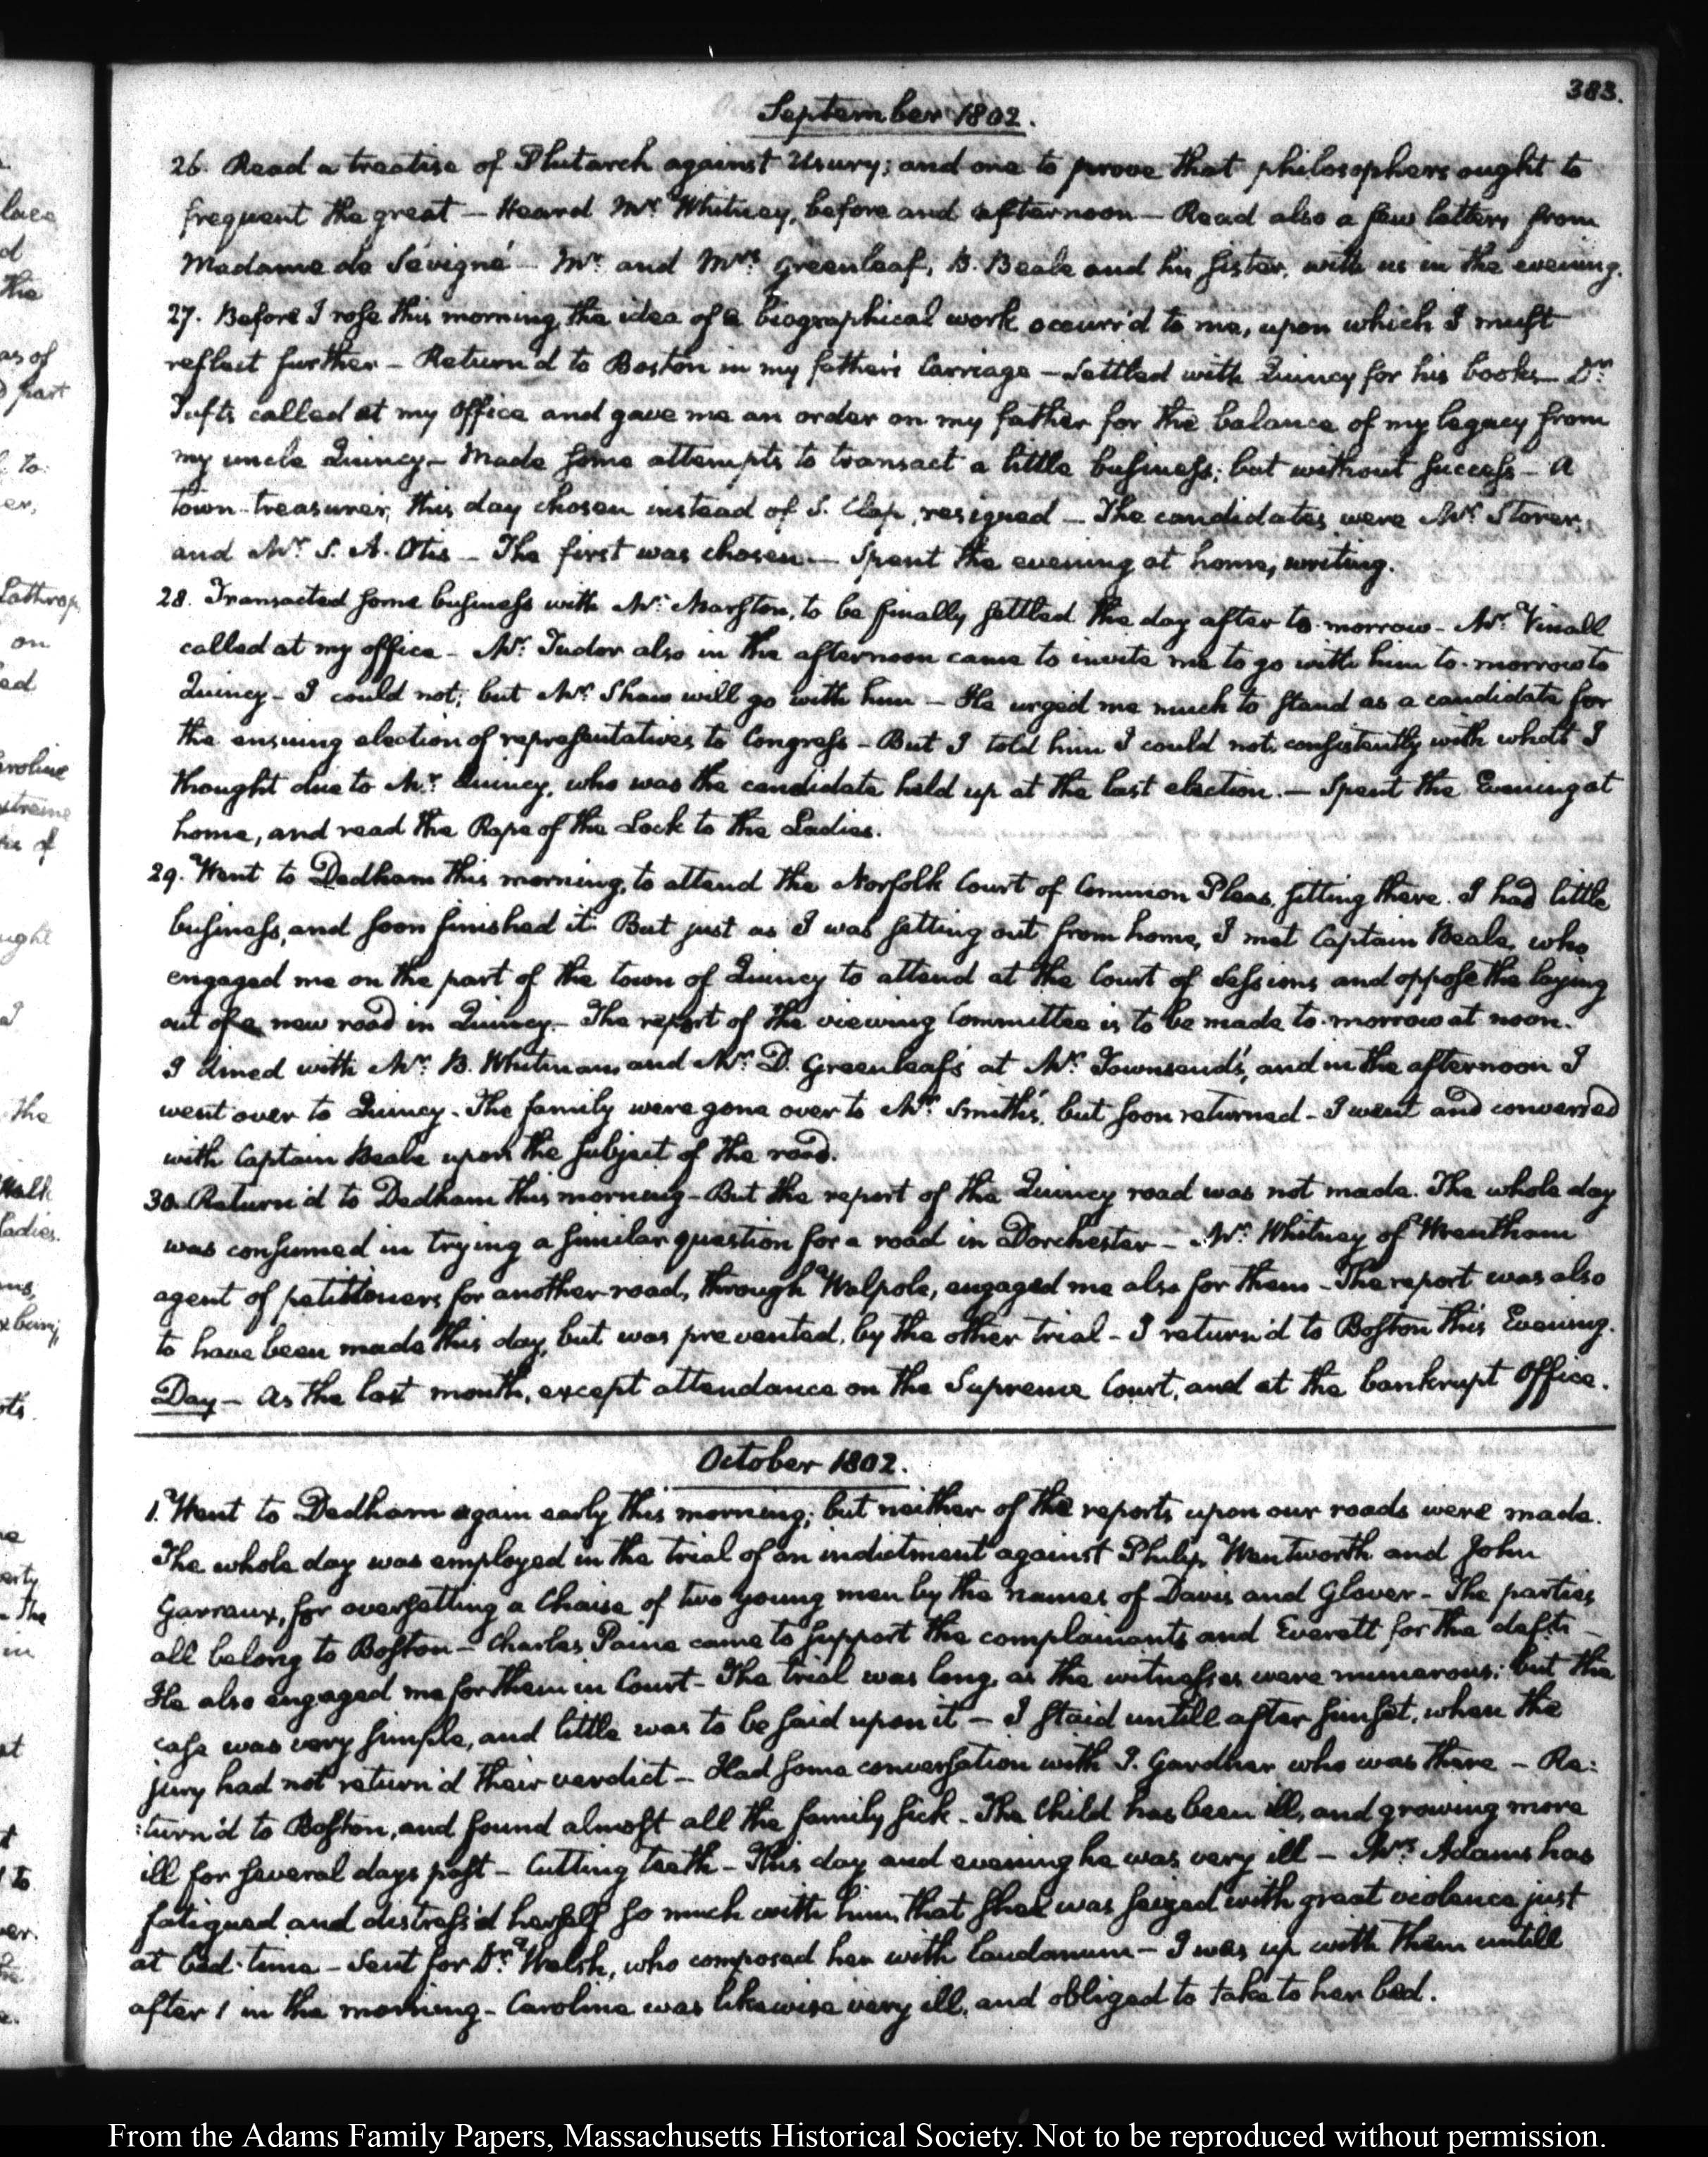 383.
September 1802.
26. Read a treatise of Plutarch against Usury; and one to prove that philosophers ought to
frequent the great — Heard Mr. Whitney, before and afternoon — Read also a few letters from
Madame de Sévigné — Mr. and Mrs. Greenleaf, B. Beale and his sister, with us in the evening.
27. Before I rose this morning, the idea of a biographical work occurr'd to me, upon which I must
reflect further — Return'd to Boston in my father's Carriage — Settled with Quincy for his books — Dr.
Tufts called at my office and gave me an order on my father for the balance of my legacy from
my uncle Quincy — Made some attempts to transact a little business; but without success — A
town-treasurer, this day chosen instead of S. Clap, resigned — The candidates were Mr. Storer,
and Mr. S. A. Otis — The first was chosen — Spent the evening at home, writing.
28. Transacted some business with Mr. Marston, to be finally settled the day after to-morrow — Mr. Vinall
called at my office — Mr. Tudor also in the afternoon came to invite me to go with him to-morrow to
Quincy — I could not; but Mr. Shaw will go with him — He urged me much to stand as a candidate for
the ensuing election of representatives to Congress — But I told him I could not, consistently with what I
thought due to Mr. Quincy, who was the candidate held up at the last election. — Spent the Evening at
home, and read the Rape of the Lock to the Ladies.
29. Went to Dedham this morning, to attend the Norfolk Court of Common Pleas, sitting there. I had little
business, and soon finished it. But just as I was setting out from home, I met Captain Beale, who
engaged me on the part of the town of Quincy to attend at the Court of Sessions and oppose the laying
out of a new road in Quincy — The report of the viewing Committee is to be made to-morrow at noon.
I dined with Mr. B. Whitman and Mr. D. Greenleaf's at Mr. Townsend's, and in the afternoon I
went over to Quincy — The family were gone over to Mr. Smith's, but soon returned — I went and conversed
with Captain Beale upon the subject of the road.
30. Return'd to Dedham this morning — But the report of the Quincy road was not made. The whole day
was consumed in trying a similar question for a road in Dorchester — Mr. Whitney of Wrentham
agent of petitioners for another road, through Walpole, engaged me also for them — The report was also
to have been made this day, but was prevented, by the other trial — I return'd to Boston this Evening.
Day — As the last month, except attendance on the Supreme Court, and at the bankrupt Office.
October 1802.
1. Went to Dedham again early this morning; but neither of the reports upon our roads were made.
The whole day was employed in the trial of an indictment against Philip Wentworth and John
Garraux, for oversetting a Chaise of two young men by the names of Davis and Glover — The parties
all belong to Boston — Charles Paine came to support the complainants and Everett for the defts —
He also engaged me for them in Court — The trial was long, as the witnesses were numerous: but the
case was very simple, and little was to be said upon it — I staid untill after sunset, when the
jury had not return'd their verdict — Had some conversation with J. Gardner who was there — Re:
:turn'd to Boston, and found almost all the family sick — The Child has been ill, and growing more
ill for several days past — Cutting teeth — This day and evening he was very ill — Mrs. Adams has
fatigued and distress'd herself so much with him, that she was seized with great violence just
at bed-time — Sent for Dr. Welsh, who composed her with laudanum — I was up with them untill
after 1 in the morning — Caroline was likewise very ill, and obliged to take to her bed.
From the Adams Family Papers, Massachusetts Historical Society. Not to be reproduced without permission.